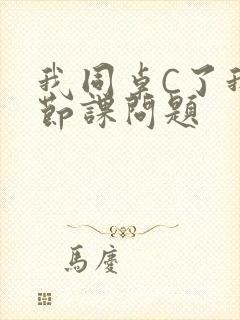 我同卓C了我
節課問題
馬慶